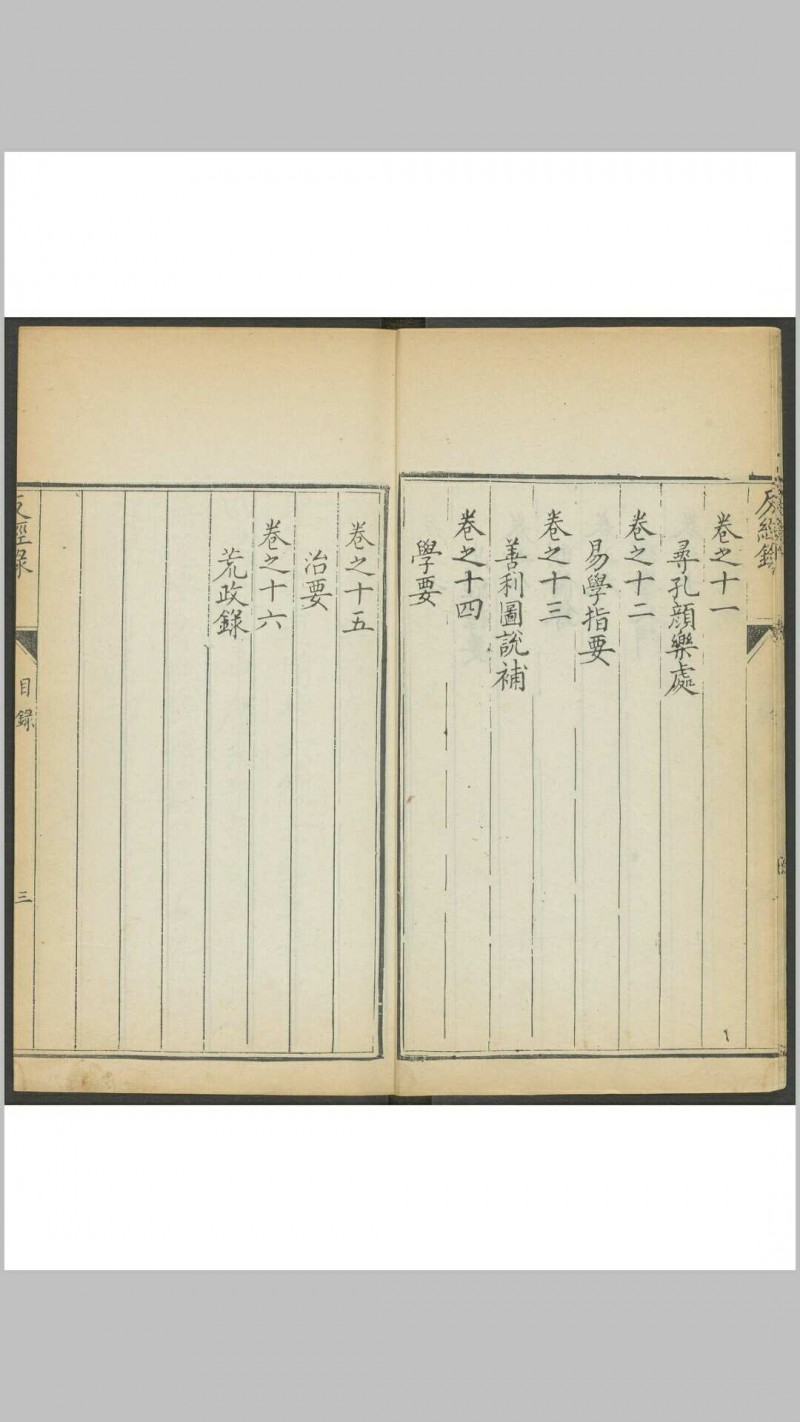 反經錄
卷之十一
尋孔顏樂處
卷之十二
易學指要
卷之十三
善利圖說補
卷之十四
學要
卷之十五
治要
卷之十六
荒政錄
反經錄
目錄
三